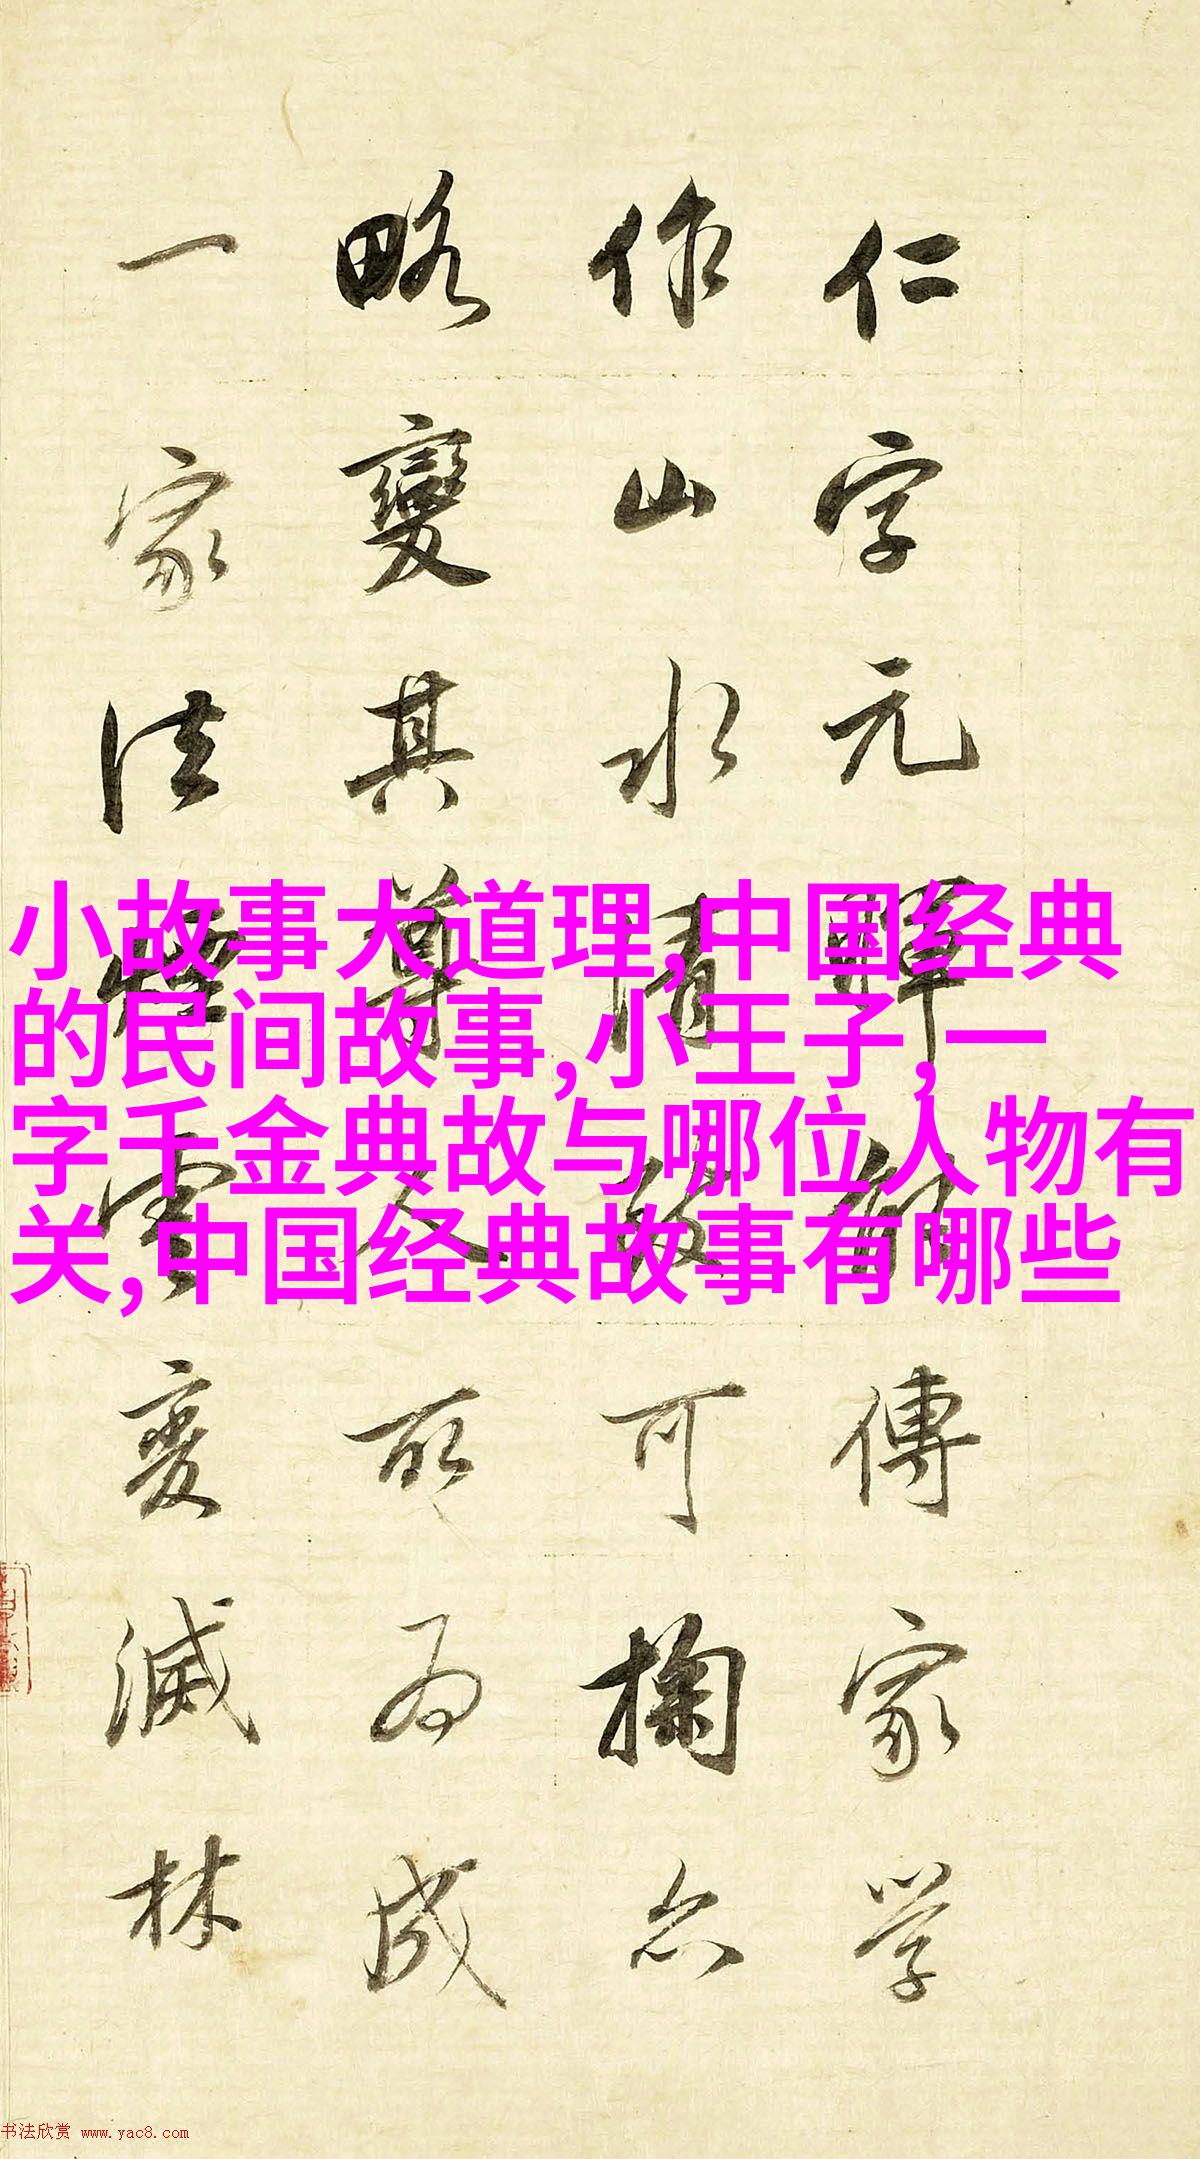 仁字元暉能傳家學
作山水清致可掬亦
略變其尊人所為成
一家法煙雲變滅林
小故事大道理,中国经典
的民间故事,小王子,一
字千金典故与哪位人物有
关,中国经典故事有哪些
书法欣赏 www.yac8.com